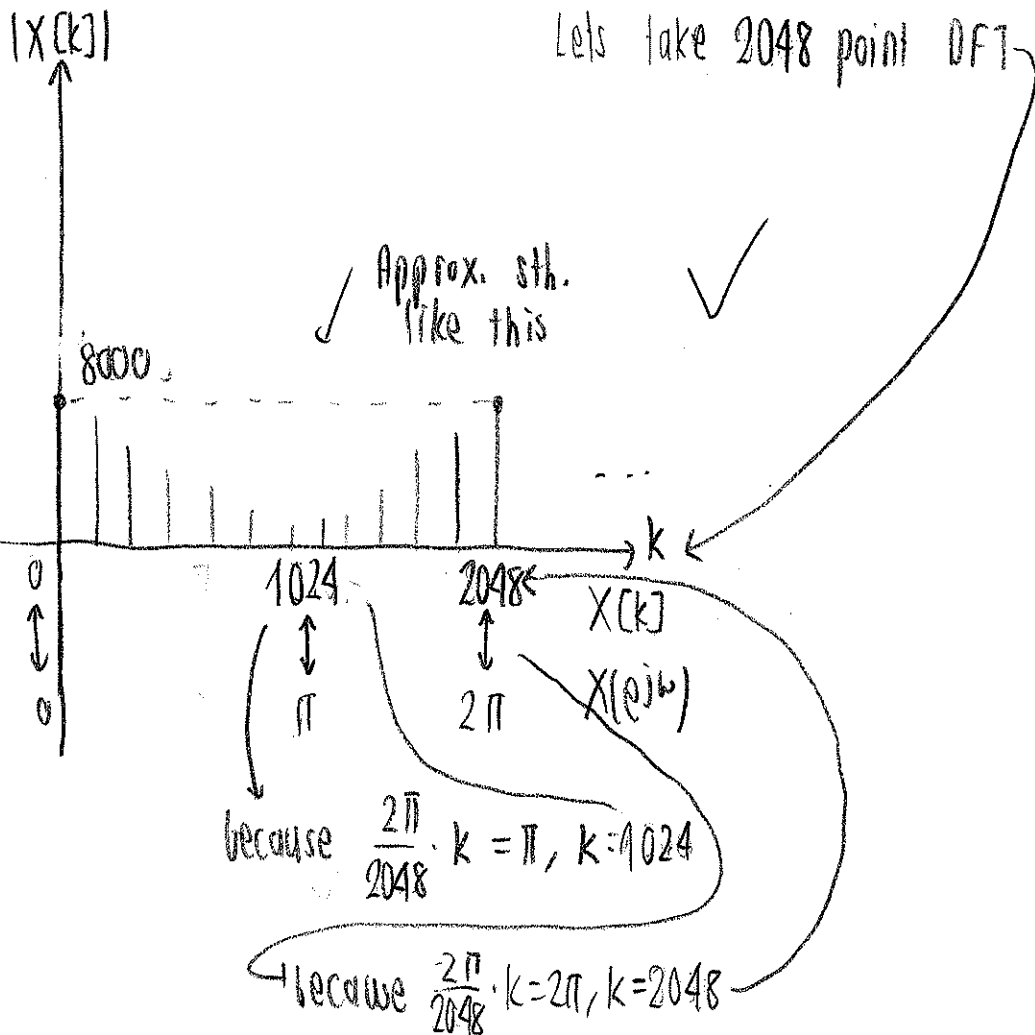 |X[k]|
Lets take 2048 point DFT
Approx. sth.
like this
8000
...
k
0
1024
2048
X[k]
0
π
2π
X(e^jω)
because 2π/2048 · k = π, k=1024
because 2π/2048 · k=2π, k=2048